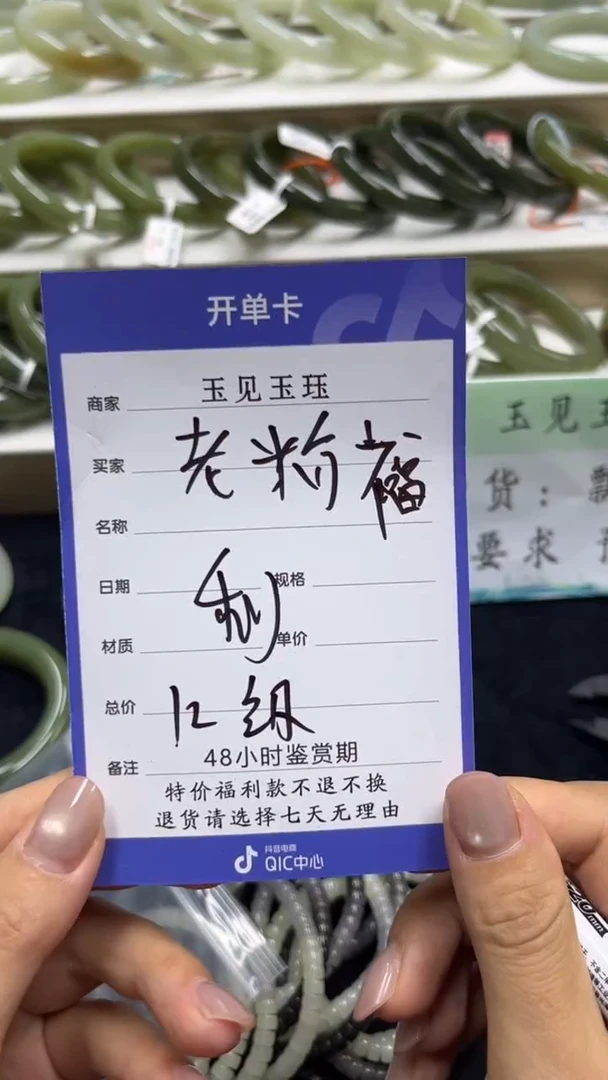 开单卡
商家 玉见玉珏
买家 老粉福
名称
日期 利 规格
材质 单价
总价 12组
备注 48小时鉴赏期
特价福利款不退不换
退货请选择七天无理由
抖音电商
QIC中心
玉见玉
货：
要求